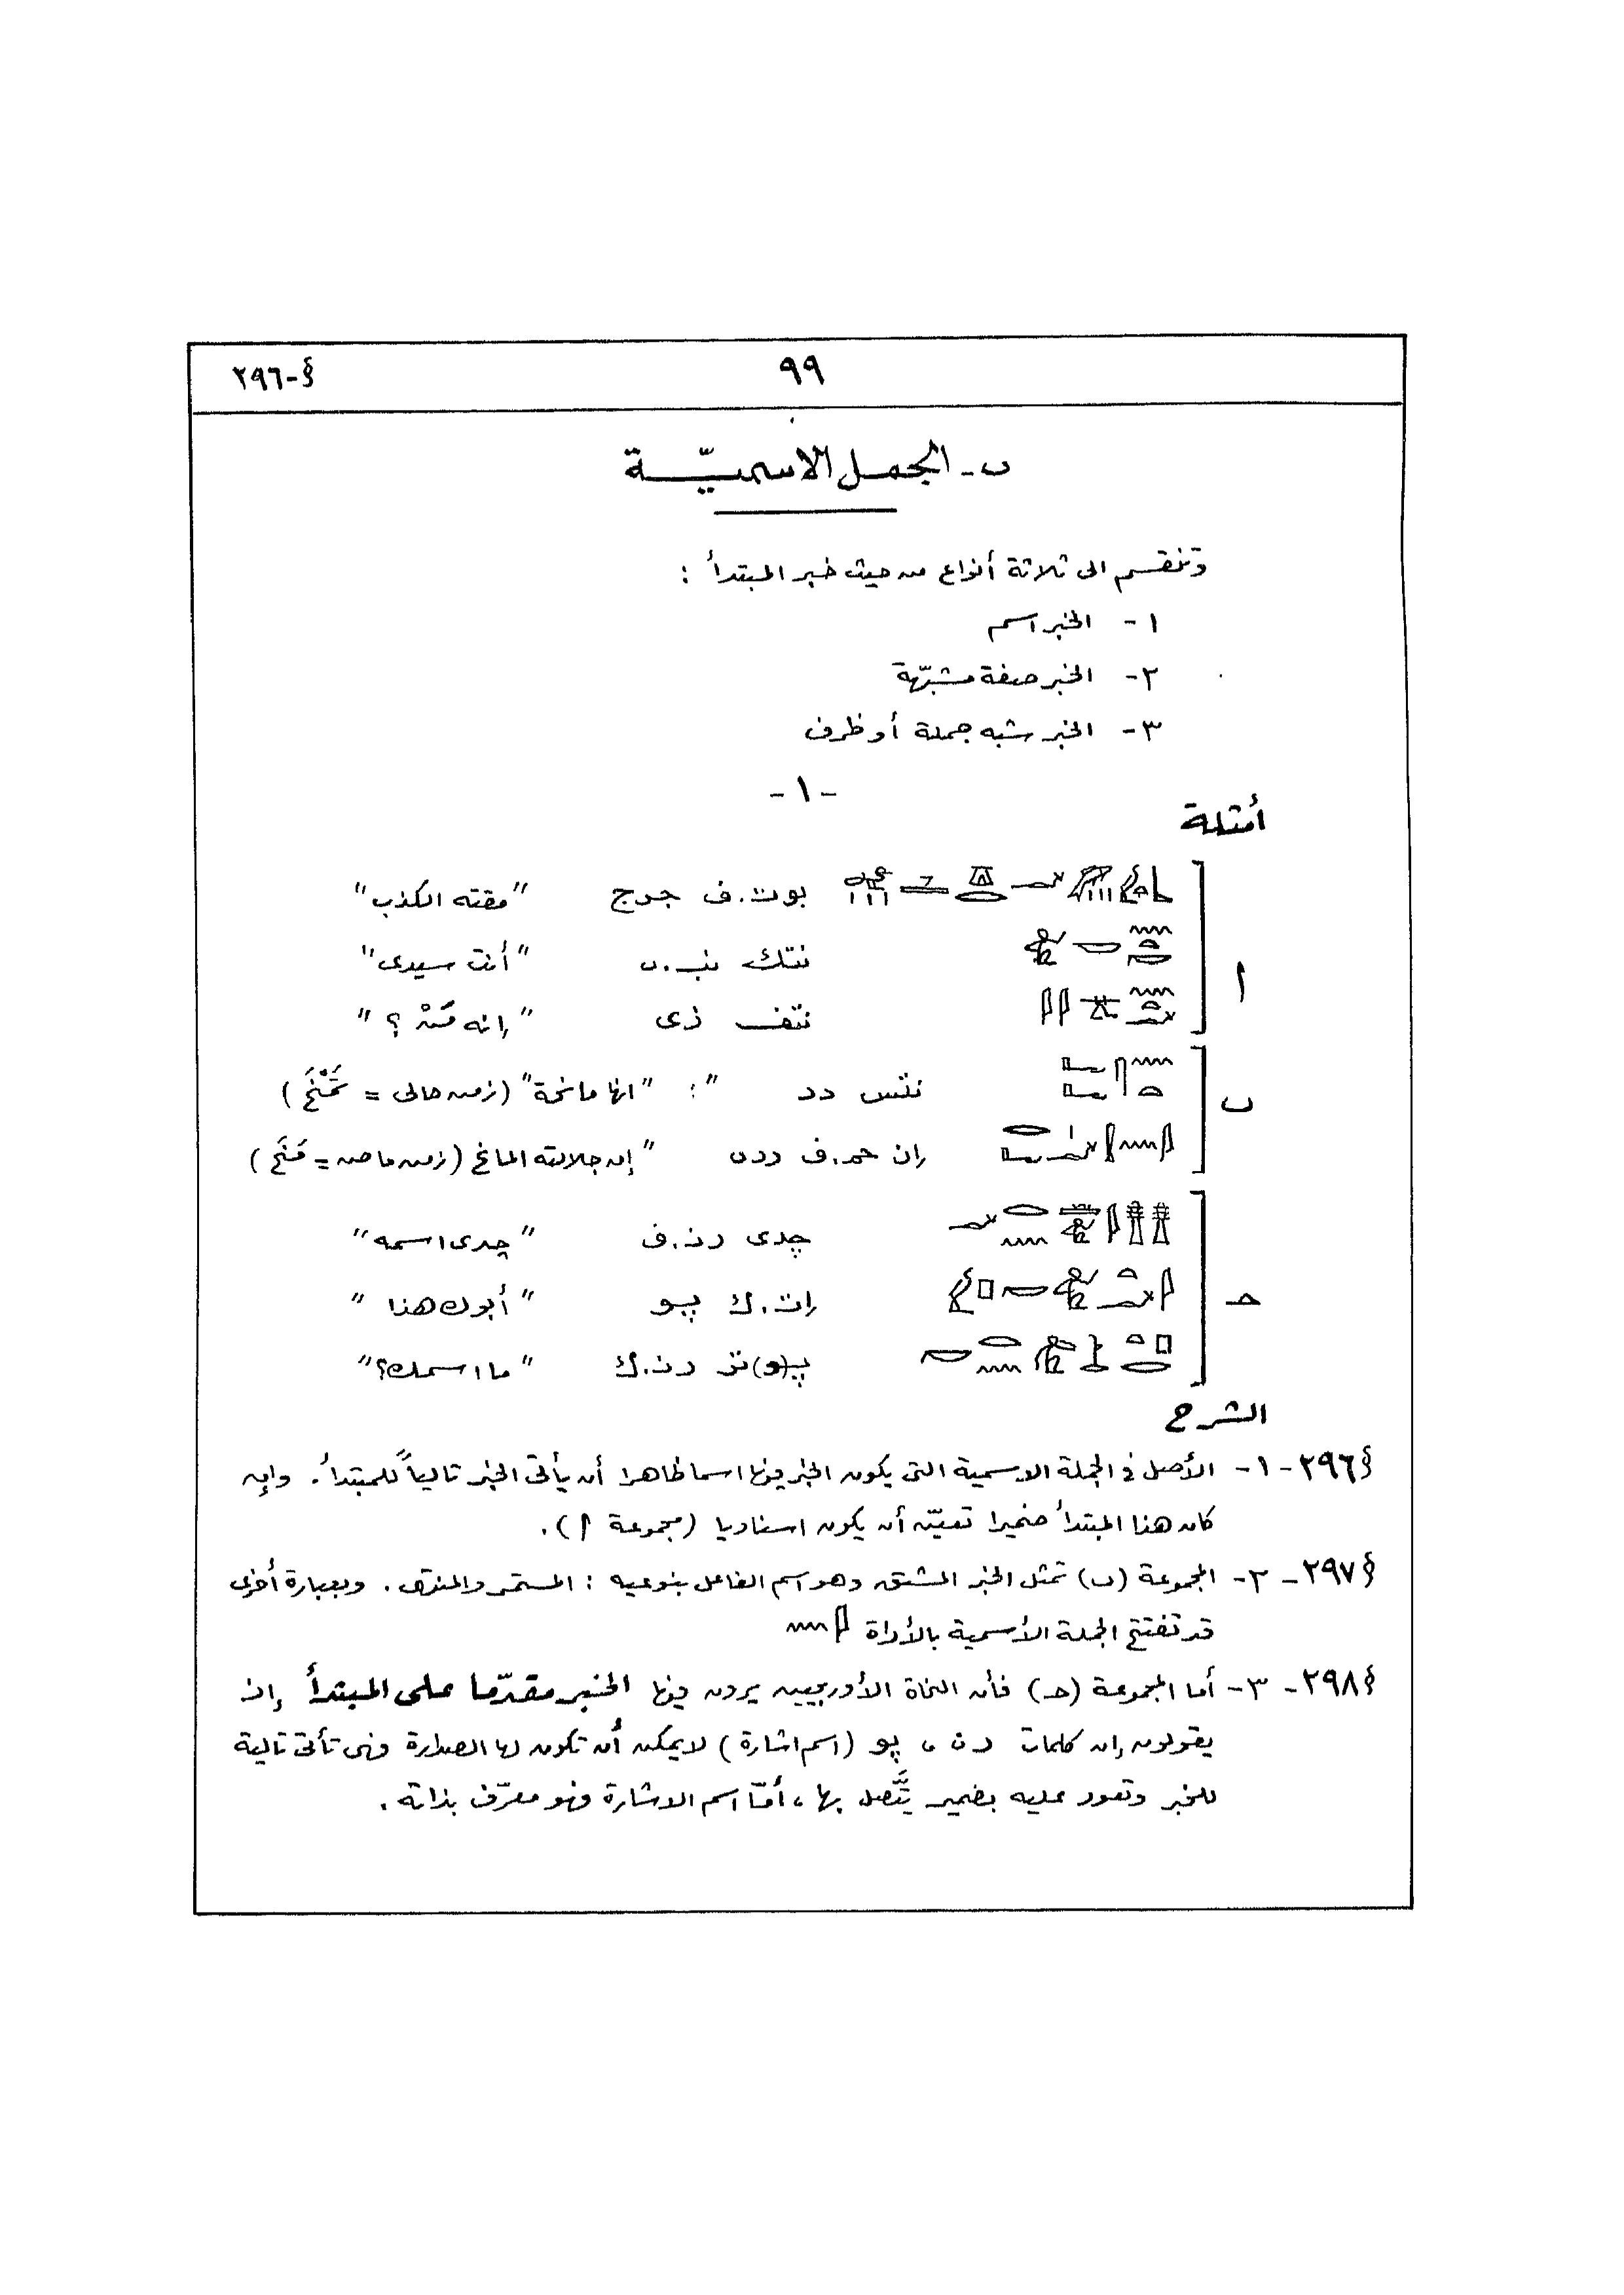 §-٢٩٦
٩٩
ب- الجمل الاسميّة
وتنقسم الى ثلاثة أنواع من حيث خبر المبتدأ :
١- الخبر اسم
٢- الخبر صفة مشبّهة
٣- الخبر شبه جملة أو ظرف
-١-
أمثلة
أ
بوت.ف جرج "مقته الكذب"
نتك نب.ى "أنت سيدى"
نتف زى "إنه مَنْ ؟"
ب
نتس دد ": "انها مانحة" (زمن حالى = تَمْنَح)
إن حم.ف ددى "إن جلالته المانح (زمن ماض = مَنَح)
حـ
چدى رن.ف "چدى اسمه"
إت.ك پو "أبوك هذا"
پ(و)تر رن.ك "ما اسمك؟"
الشرح
§٢٩٦-١- الأصل فى الجملة الاسمية التى يكون الخبر فيها اسما ظاهرا أن يأتى الخبر تالياً للمبتدأ. وإن
كان هذا المبتدأ ضميرا تعيّن أن يكون اسناديا (مجموعة أ).
§٢٩٧-٢- المجموعة (ب) تمثل الخبر المشتق وهو اسم الفاعل بنوعيه : المستمر والمنتهى. وبعبارة أخرى
قد تفتتح الجملة الأسمية بالأداة
§٢٩٨-٣- أما المجموعة (حـ) فأن النحاة الأوربيين يرون فيها الخبر مقدّما على المبتدأ إذ
يقولون إن كلمات رن ، پو (اسم اشارة) لا يمكن أن تكون لها الصدارة فهى تأتى تالية
للخبر وتعود عليه بضمير يتَّصل بها ، أمّا اسم الاشارة فهو معرّف بذاته.